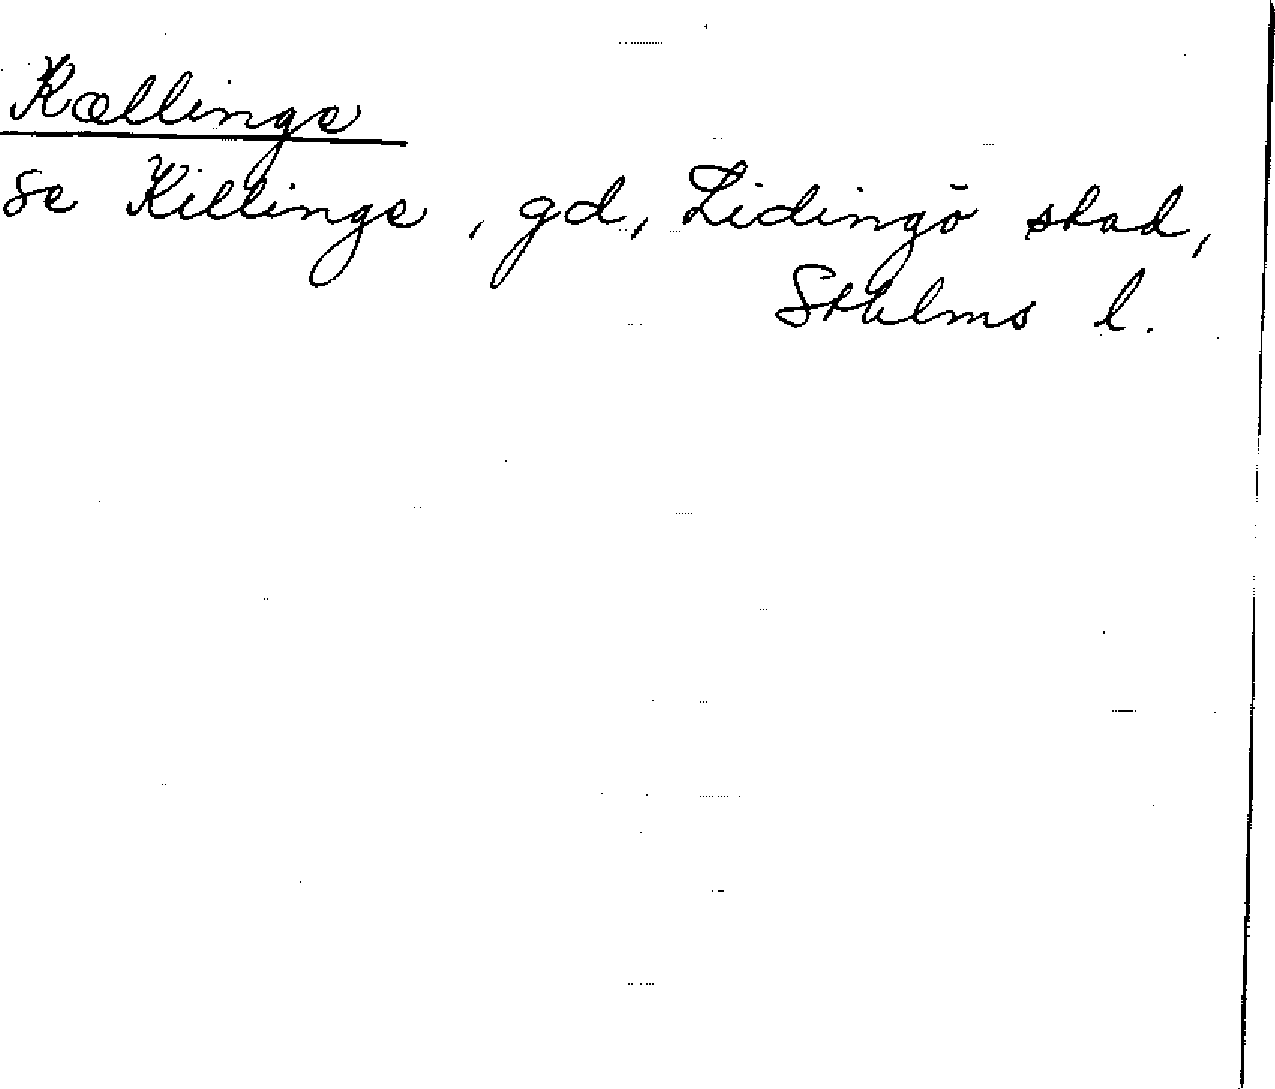 Kællinge
se Killinge, gd, Lidingö stad,
Sthlms l.